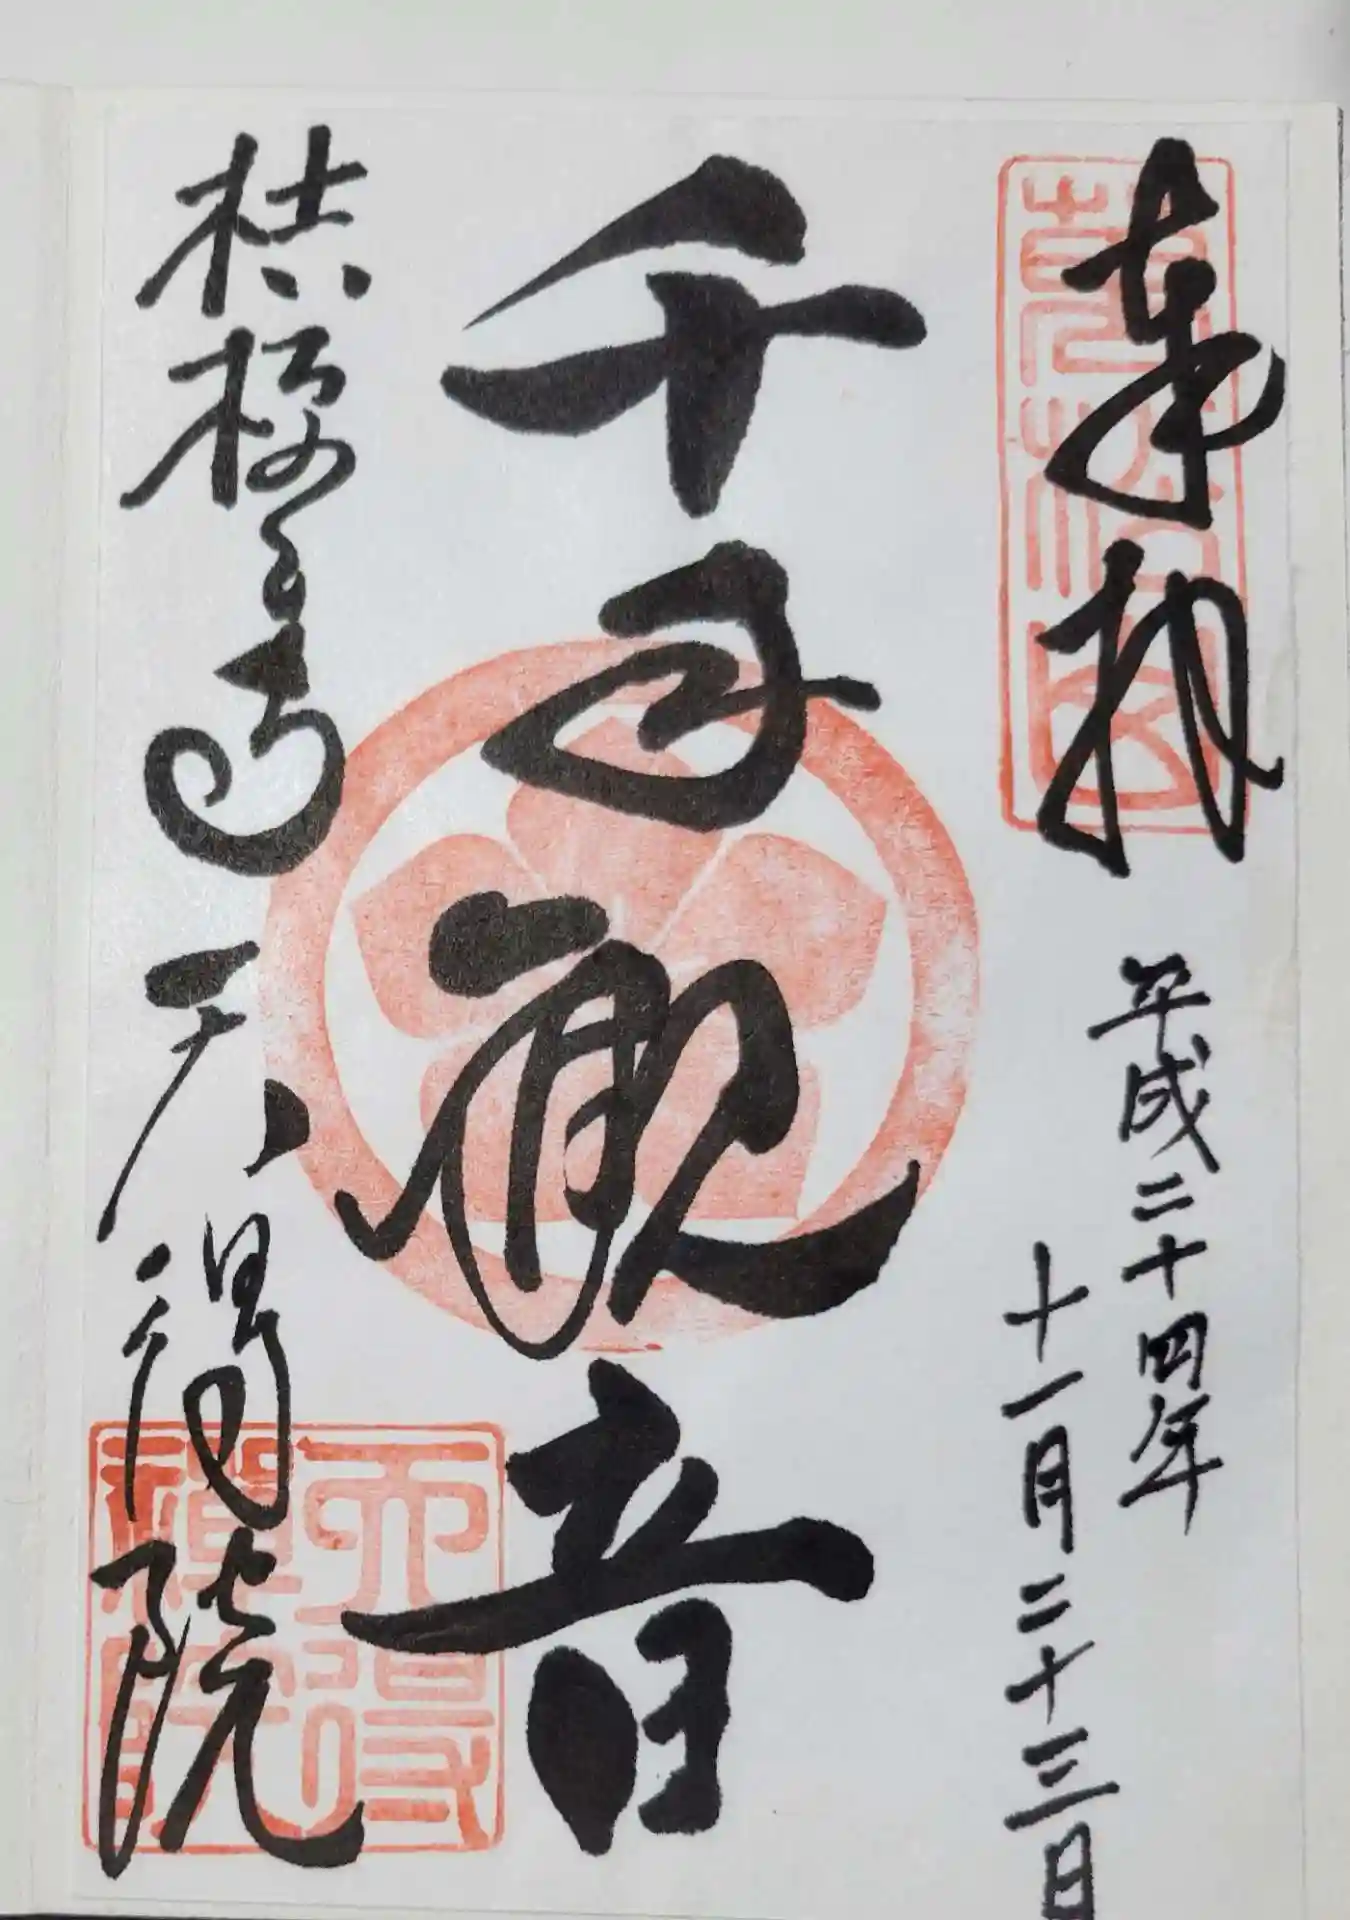 奉拝
平成二十四年
十一月二十三日
千手観音
桔梗寺 天得院
天得禅院